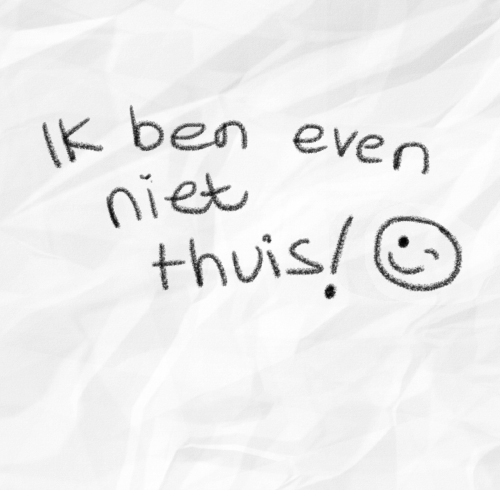 Ik ben even
niet
thuis!